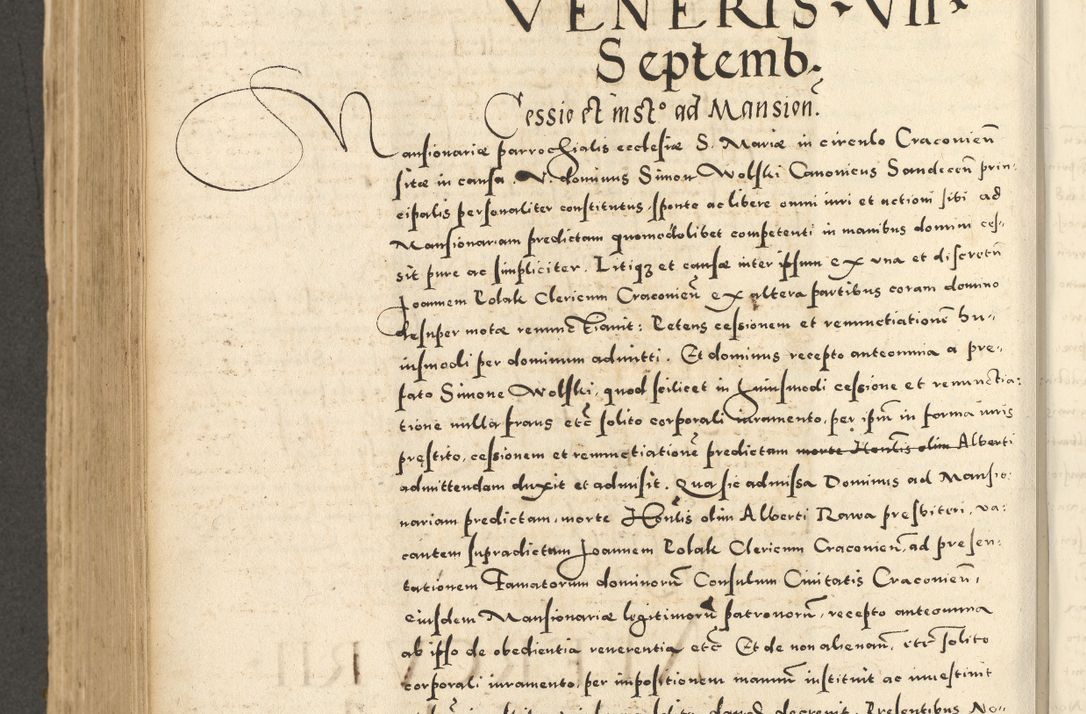 VENERIS · VII ·
Septemb.
Cessio et inst° ad Mansion̄.
Mansionariæ parrochialis ecclesiæ S. Mariæ in circulo Craconien̄
sitæ in causa. V. dominus Simon Wolski Canonicus Sandecen̄ prin-
cipalis personaliter constitutus sponte ac libere omni iuri et actioni sibi ad
Mansionariam predictam quomodolibet competenti in manibus domini ces-
sit pure ac simpliciter. Litiqȝ et causæ inter ipsum ex una et discretū
Joannem Polak Clericum Craconien̄ ex altera partibus coram domino
desuper motæ renunctiauit: Petens cessionem et renunctiationē hu-
iusmodi per dominum admitti. Et dominus recepto anteomnia a pre-
fato Simone Wolski, quod scilicet in huiusmodi cessione et renunctia-
tione nulla fraus etc̄ solito corporali iuramento, per ipm̄ in forma iuris
prestito, cessionem et renunctiationē predictam morte Honlis olim Alberti
admittendam duxit et admisit. Qua sic admissa Dominus ad Mansio-
nariam predictam, morte Honlis olim Alberti Rawa presbiteri, va-
cantem supradictum Joannem Polak Clericum Craconien̄, ad presen-
tationem Famatorum dominorū Consulum Ciuitatis Craconien̄,
eiusdem Mansionariæ legitimorū patronorū, recepto anteomnia
ab ipso de obedientia reuerentia etc̄ Et de non alienan̄, etc̄ solito
corporali iuramento, per impositionem manuū instituit ac inuestiuit
decreuit. Presentibus No-